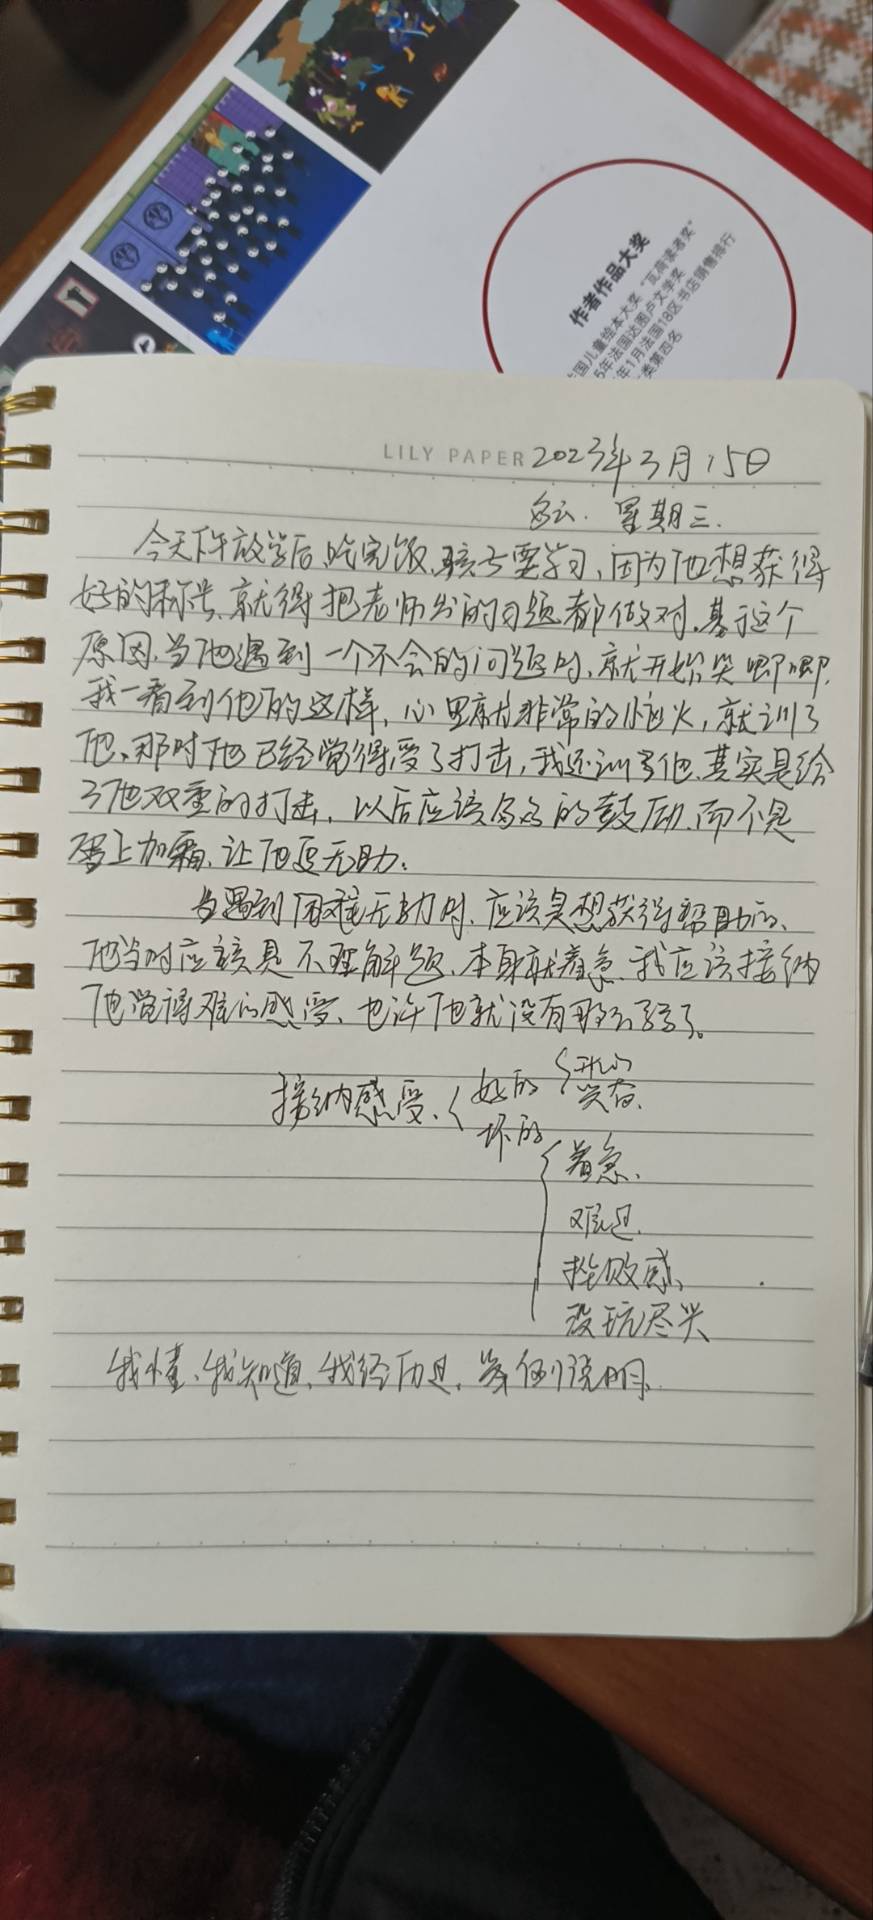 作者作品大奖
国儿童绘本大奖“瓦荷读者奖”
5年法国达图卢文学奖
年1月法国18区书店销售排行
类第四名
LILY PAPER 2023年3月15日
多云. 星期三.
今天下午放学后,吃完饭,孩子要学习,因为他想获得
好的称号,就得把老师出的习题都做对,基于这个
原因,当他遇到一个不会的问题时,就开始哭唧唧,
我一看到他的这样,心里就非常的恼火,就训了
他,那时他已经觉得受了打击,我还训了他,其实是给
了他双重的打击,以后应该多多的鼓励,而不是
雪上加霜,让他更无助。
当遇到困难无助时,应该是想获得帮助的,
他当时应该是不理解题,本身就着急,我应该接纳
他觉得难的感受,也许他就没有那么
接纳感受、{ 好的 { 开心
兴奋.
坏的
{ 着急、
难过.
挫败感、
没玩尽兴
我懂、我知道、我经历过,举例说明.